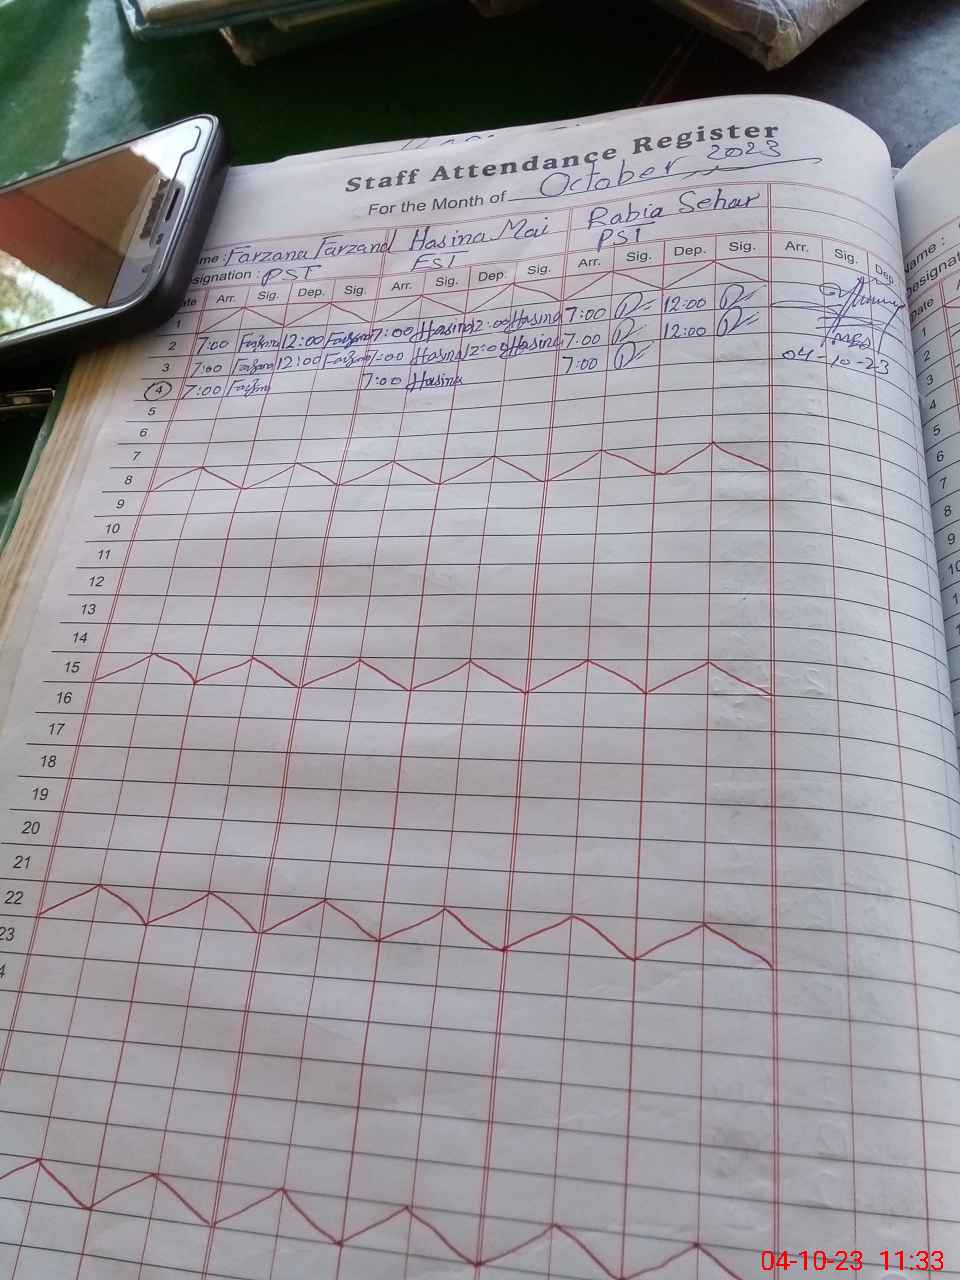 Staff Attendance Register
For the Month of October 2023
me : Farzana Farzand Hasina Mai Rabia Sehar
signation : PST EST PST
ate Arr. Sig. Dep. Sig. Arr. Sig. Dep. Sig. Arr. Sig. Dep. Sig. Arr. Sig. Dep
1
2 7:00 12:00 7:00 Hasina 12:00 Hasina 7:00 12:00
3 7:00 12:00 7:00 Hasina 12:00 Hasina 7:00 12:00
4 7:00 7:00 Hasina 7:00 04-10-23
5
6
7
8
9
10
11
12
13
14
15
16
17
18
19
20
21
22
23
4
Name :
Designat
Date
1
2
3
4
5
6
7
8
9
10
04-10-23 11:33